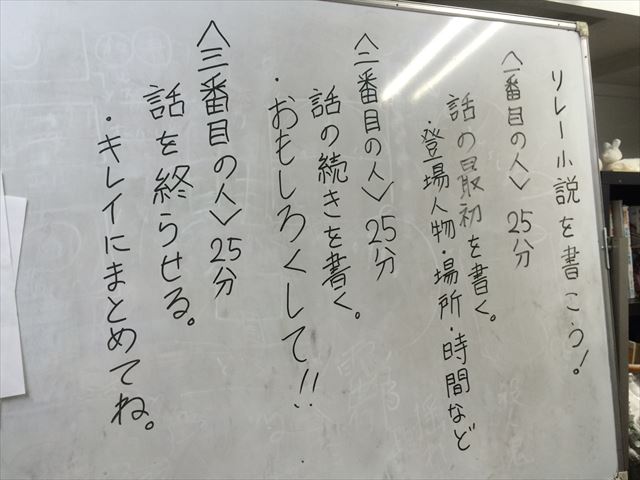 リレー小説を書こう!
〈一番目の人〉25分
話の最初を書く。
・登場人物・場所・時間など
〈二番目の人〉25分
話の続きを書く。
・おもしろくして!!
〈三番目の人〉25分
話を終らせる。
・キレイにまとめてね。